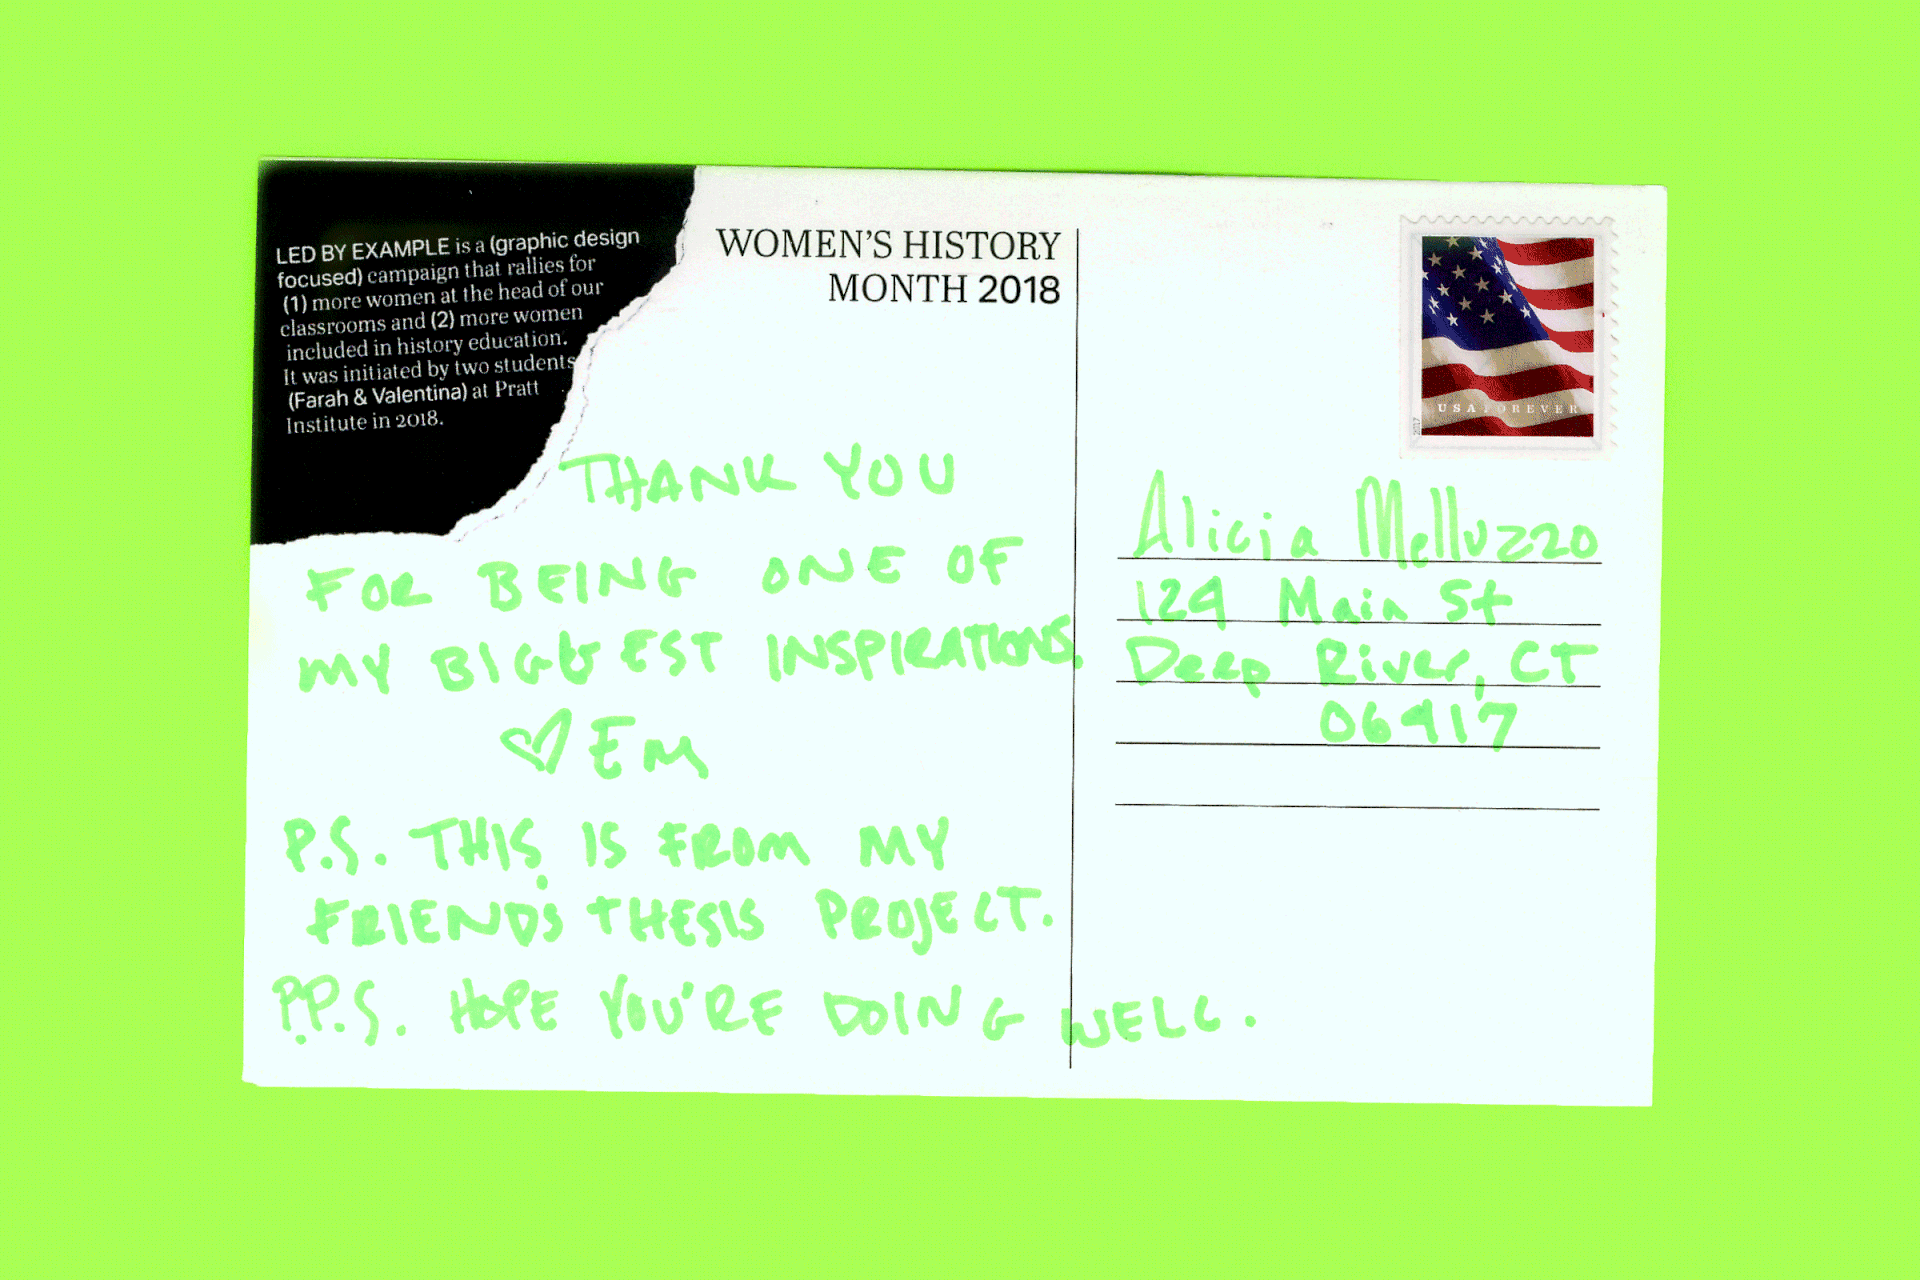 LED BY EXAMPLE is a (graphic design
focused) campaign that rallies for
(1) more women at the head of our
classrooms and (2) more women
included in history education.
It was initiated by two students
(Farah & Valentina) at Pratt
Institute in 2018.
WOMEN'S HISTORY
MONTH 2018
THANK YOU
FOR BEING ONE OF
MY BIGGEST INSPIRATIONS.
♡ EM
P.S. THIS IS FROM MY
FRIENDS THESIS PROJECT.
P.P.S. HOPE YOU'RE DOING WELL.
2017
USA FOREVER
Alicia Melluzzo
124 Main St
Deep River, CT
06417